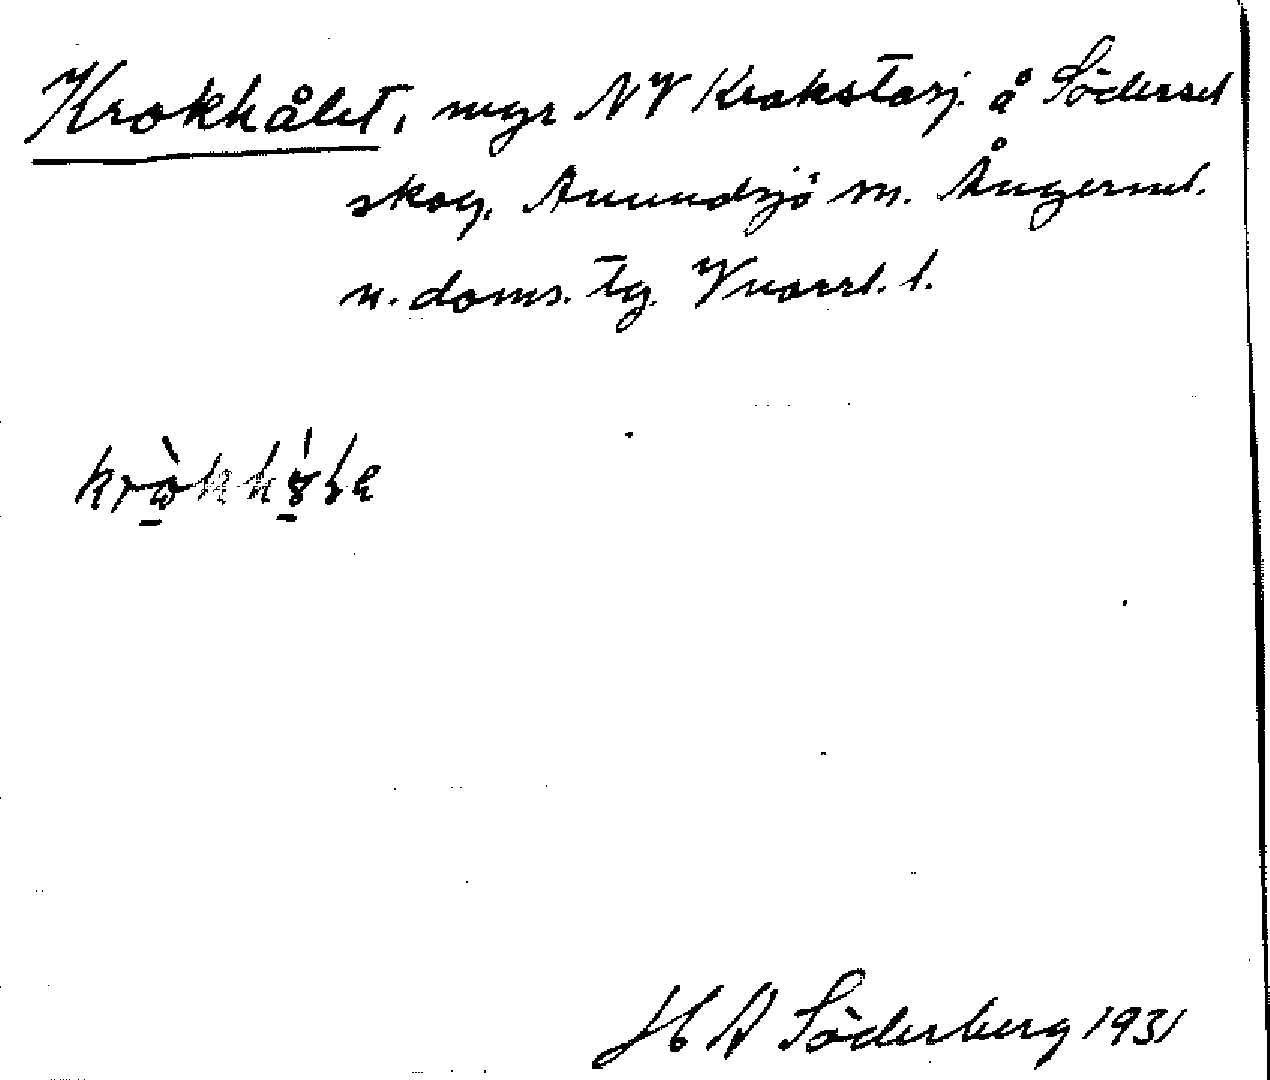 Krokhålet, myr NV Krokstarj. å Södersel
skog, Anundsjö sn. Ångerml.
n. doms. tg. Vnorrl. l.
H A Söderberg 1931